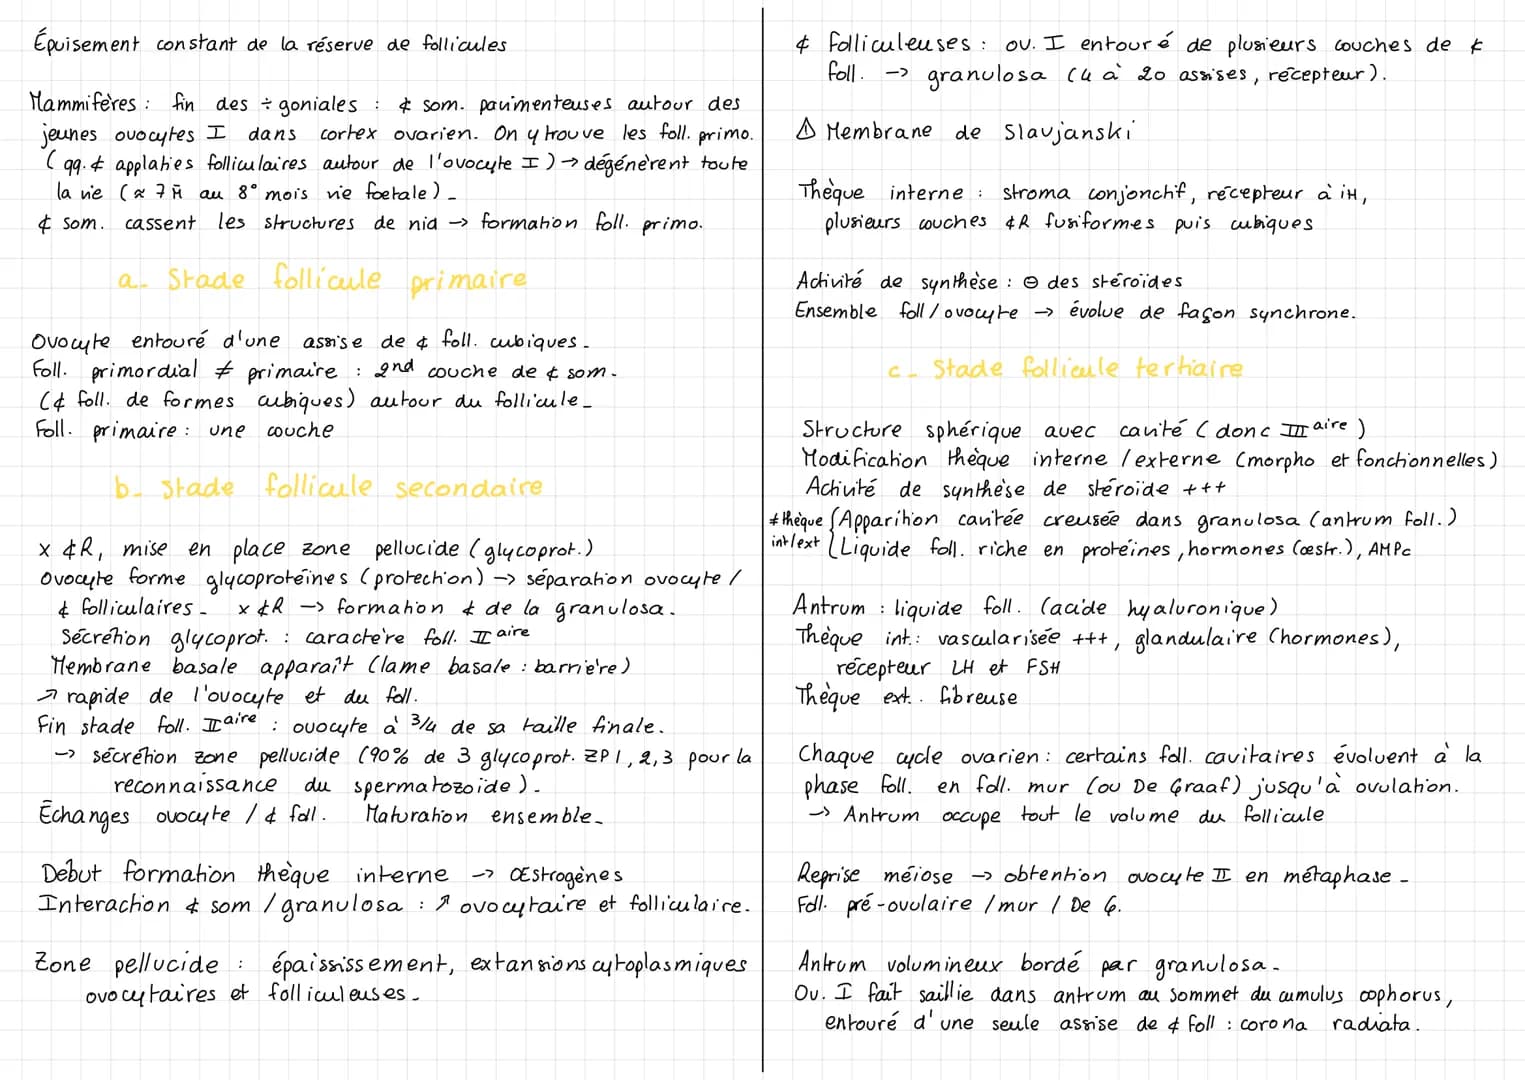 Épuisement constant de la réserve de follicules
Mammifères : fin des ÷ goniales : ¢ som. pavimenteuses autour des
jeunes ovocytes I dans cortex ovarien. On y trouve les foll. primo.
( qq. ¢ applaties folliculaires autour de l'ovocyte I ) → dégénèrent toute
la vie ( ≈ 7 M̄ au 8° mois vie foetale ) _
¢ som. cassent les structures de nid → formation foll. primo.
a- Stade follicule primaire
Ovocyte entouré d'une assise de ¢ foll. cubiques _
Foll. primordial ≠ primaire : 2nd couche de ¢ som -
(¢ foll. de formes cubiques) autour du follicule _
Foll. primaire : une couche
b- Stade follicule secondaire
x ¢R, mise en place zone pellucide (glycoprot.)
Ovocyte forme glycoprotéines (protection) → séparation ovocyte /
¢ folliculaires - x ¢R → formation ¢ de la granulosa.
Sécrétion glycoprot. : caractère foll. IIaire
Membrane basale apparaît (lame basale : barrière)
↗ rapide de l'ovocyte et du foll.
Fin stade foll. IIaire : ovocyte à 3/4 de sa taille finale.
→ sécrétion zone pellucide (90% de 3 glycoprot. ZP1, 2, 3 pour la
reconnaissance du spermatozoïde ) -
Échanges ovocyte / ¢ foll. Maturation ensemble _
Début formation thèque interne → OEstrogènes
Interaction ¢ som / granulosa : ↗ ovocytaire et folliculaire.
Zone pellucide : épaississement, extansions cytoplasmiques
ovocytaires et folliculeuses -
¢ folliculeuses : ov. I entouré de plusieurs couches de ¢
foll. → granulosa (4 à 20 assises, récepteur).
⚠ Membrane de Slavjanski
Thèque interne : stroma conjonctif, récepteur à iH,
plusieurs couches ¢R fusiformes puis cubiques
Activité de synthèse : ⊖ des stéroïdes
Ensemble foll / ovocyte → évolue de façon synchrone.
c- Stade follicule tertiaire
Structure sphérique avec cavité ( donc IIIaire )
Modification thèque interne / externe (morpho et fonctionnelles)
Activité de synthèse de stéroïde +++
≠ thèque int/ext { Apparition cavitée creusée dans granulosa (antrum foll.)
Liquide foll. riche en protéines, hormones (œstr.), AMPc
Antrum : liquide foll. (acide hyaluronique)
Thèque int. : vascularisée +++, glandulaire (hormones),
récepteur LH et FSH
Thèque ext. : fibreuse
Chaque cycle ovarien : certains foll. cavitaires évoluent à la
phase foll. en foll. mur (ou De Graaf) jusqu'à ovulation.
→ Antrum occupe tout le volume du follicule
Reprise méiose → obtention ovocyte II en métaphase -
Foll. pré-ovulaire / mur / De G.
Antrum volumineux bordé par granulosa -
Ov. I fait saillie dans antrum au sommet du cumulus oophorus,
entouré d'une seule assise de ¢ foll : corona radiata.